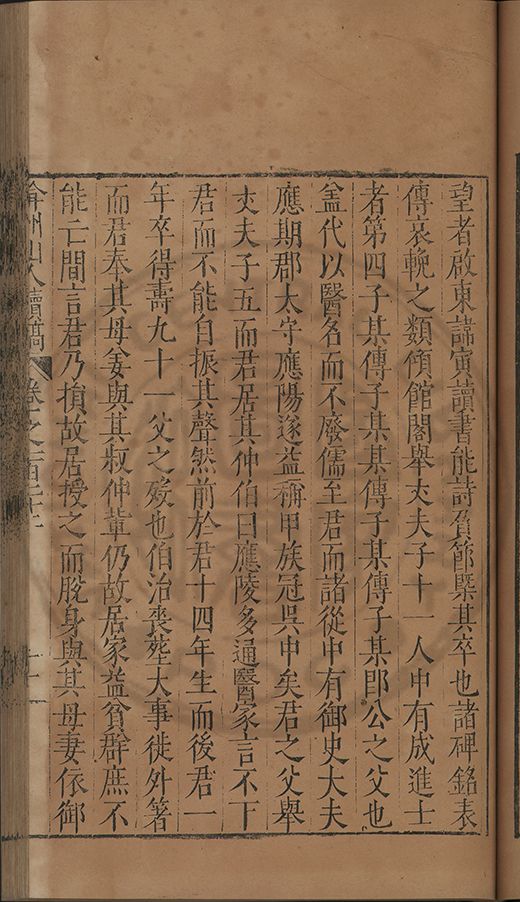 望者啟東諱寅讀書能詩負節槩其卒也諸碑銘表
傳哀輓之類傾館閣舉丈夫子十一人中有成進士
者第四子某傳子某某傳子某傳子某卽公之父也
盖代以醫名而不廢儒至君而諸從中有御史大夫
應期郡太守應陽遂益稱甲族冠吳中矣君之父舉
丈夫子五而君居其仲伯曰應陵多通醫家言不下
君而不能自振其聲然前於君十四年生而後君一
年卒得壽九十一父之歿也伯治喪塟大事徙外著
而君奉其母妾與其叔仲輩仍故居家益貧群庶不
能亡間言君乃捐故居授之而脫身與其母妻依御
弇州山人續稿 卷之一百二十